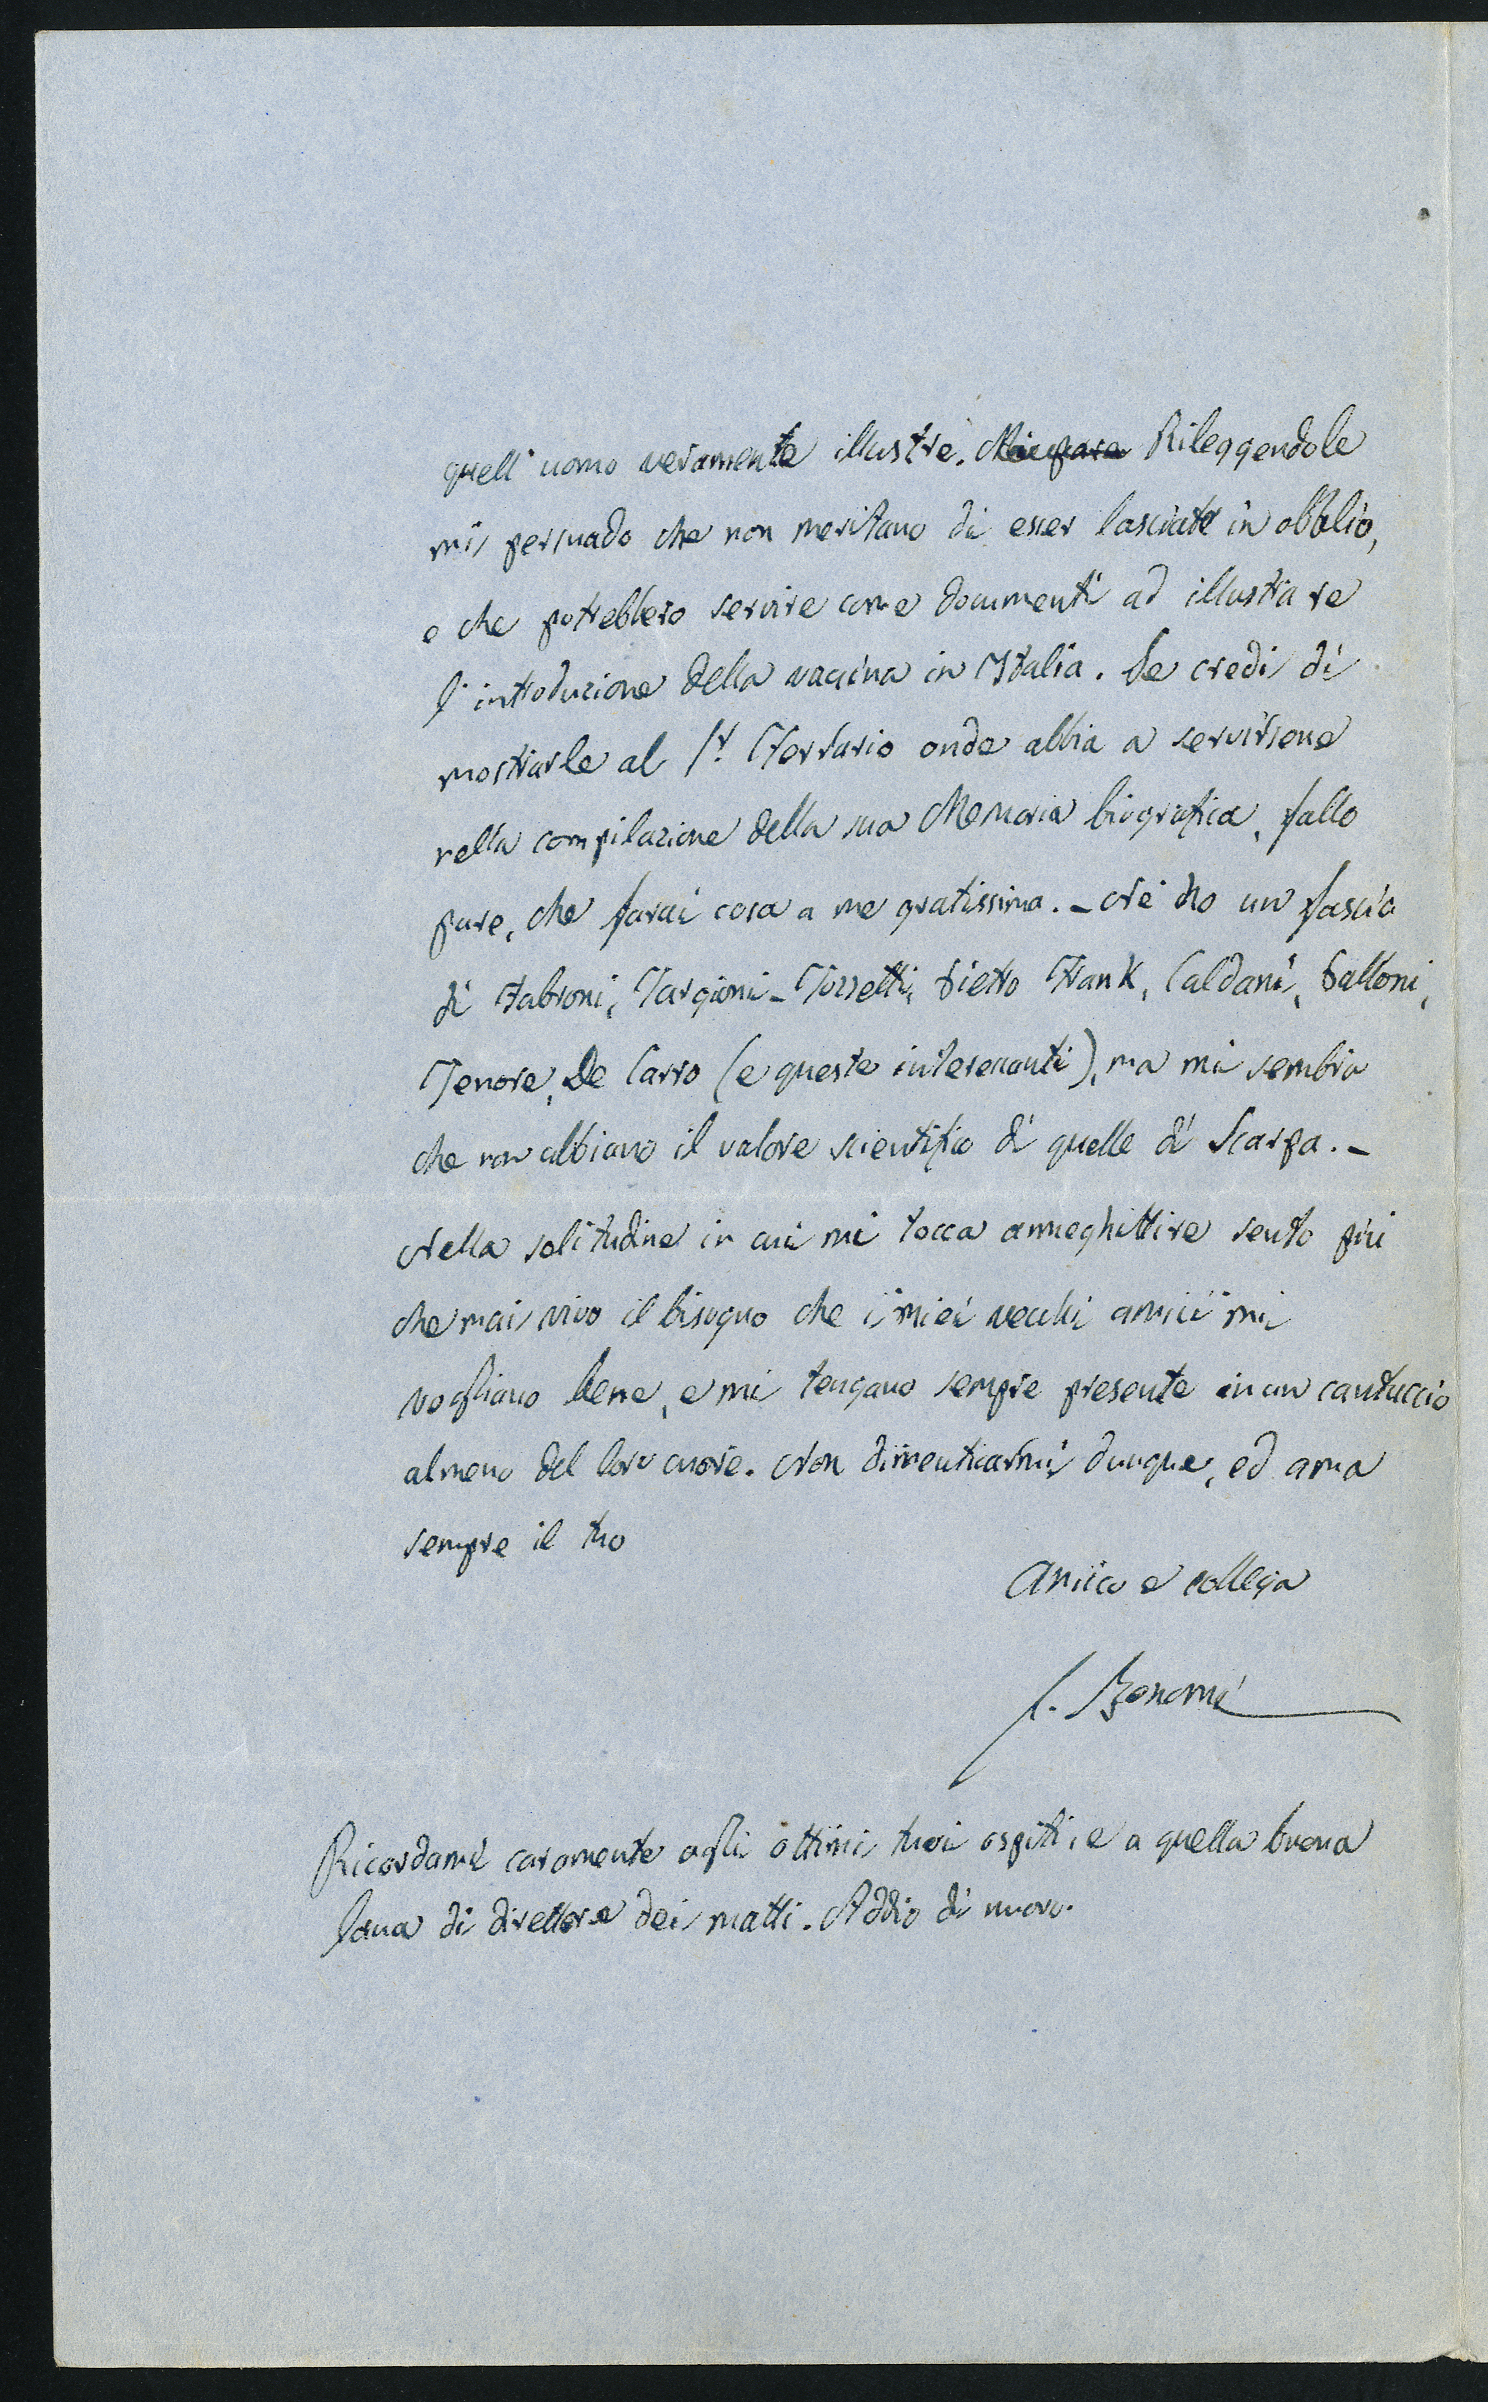 quell'uomo veramente illustre. Mi pare Rileggendole
mi persuado che non meritano di esser lasciate in obblio,
e che potrebbero servire come documenti ad illustrare
l'introduzione della vaccina in Italia. Se credi di
mostrarle al Sr. Ferrario onde abbia a servirsene
nella compilazione della sua Memoria biografica, fallo
pure, che farai cosa a me gratissima. – Ne ho un fascio
di Fabroni, Targioni-Tozzetti, Pietro Frank, Caldani, Galloni,
Tenore, De Carro (e queste interessanti), ma mi sembra
che non abbiano il valore scientifico di quelle di Scarpa. –
Nella solitudine in cui mi tocca anneghittire sento più
che mai vivo il bisogno che i miei vecchi amici mi
vogliano bene, e mi tengano sempre presente in un cantuccio
almeno del loro cuore. Non dimenticarmi dunque, ed ama
sempre il tuo
Amico e collega
S. Bonomi
Ricordami caramente agli ottimi tuoi ospiti, e a quella buona
lana di direttore dei matti. Addio di nuovo.